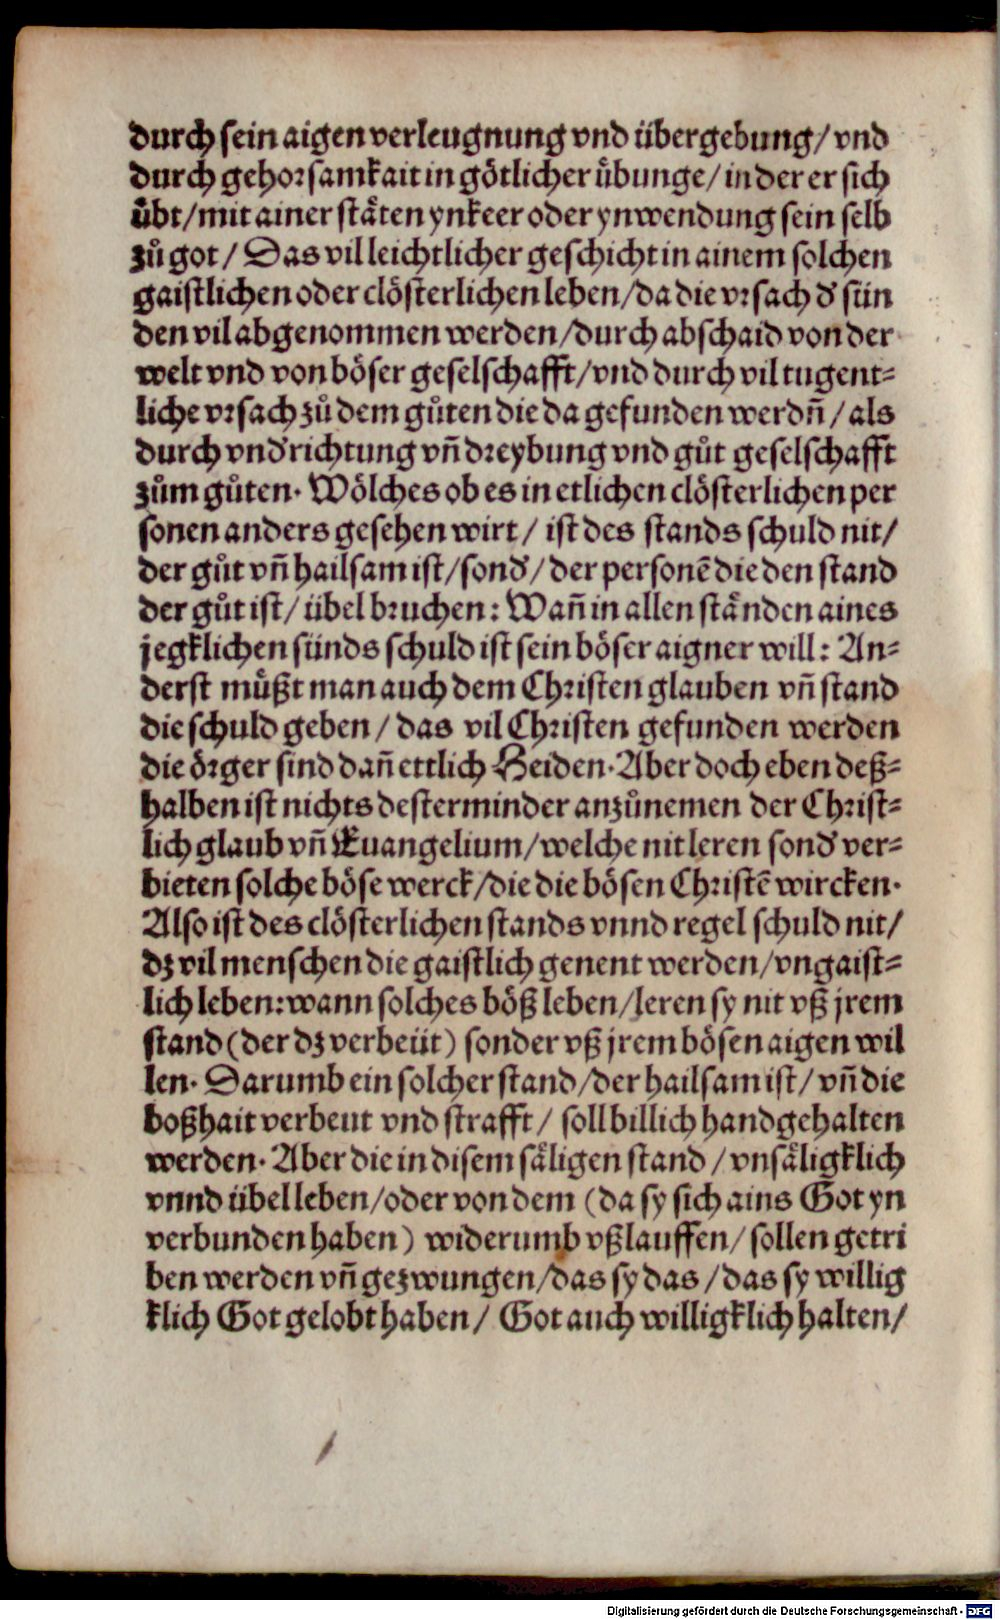 durch sein aigen verleugnung vnd übergebung/ vnd
durch gehorsamkait in götlicher übunge/ in der er sich
übt/ mit ainer stäten ynkeer oder ynwendung sein selb
zů got/ Das vil leichtlicher geschicht in ainem solchen
gaistlichen oder clösterlichen leben/ da die vrsach d' sün
den vil abgenommen werden/ durch abschaid von der
welt vnd von böser geselschafft/ vnd durch vil tugent-
liche vrsach zů dem gůten die da gefunden werdn̄/ als
durch vnd'richtung vn̄ dreybung vnd gůt geselschafft
zům gůten. Wölches ob es in etlichen clösterlichen per
sonen anders gesehen wirt/ ist des stands schuld nit/
der gůt vn̄ hailsam ist/ sond'/ der personē die den stand
der gůt ist/ übel bruchen: Wan̄ in allen ständen aines
jegklichen sünds schuld ist sein böser aigner will: An-
derst müßt man auch dem Christen glauben vn̄ stand
die schuld geben/ das vil Christen gefunden werden
die örger sind dan̄ ettlich Heiden. Aber doch eben deß-
halben ist nichts dester minder anzůnemen der Christ-
lich glaub vn̄ Euangelium/ welche nit leren sond' ver-
bieten solche böse werck/ die die bösen Christē wircken.
Also ist des clösterlichen stands vnnd regel schuld nit/
dz vil menschen die gaistlich genent werden/ vngaist-
lich leben: wann solches böß leben/ leren sy nit vß jrem
stand (der dz verbeüt) sonder vß jrem bösen aigen wil
len. Darumb ein solcher stand/ der hailsam ist/ vn̄ die
boßhait verbeut vnd strafft/ soll billich handgehalten
werden. Aber die in disem säligen stand/ vnsäligklich
vnnd übel leben/ oder von dem (da sy sich ains Got yn
verbunden haben) widerumb vßlauffen/ sollen getri
ben werden vn̄ gezwungen/ das sy das/ das sy willig
klich Got gelobt haben/ Got auch willigklich halten/
Digitalisierung gefördert durch die Deutsche Forschungsgemeinschaft - DFG